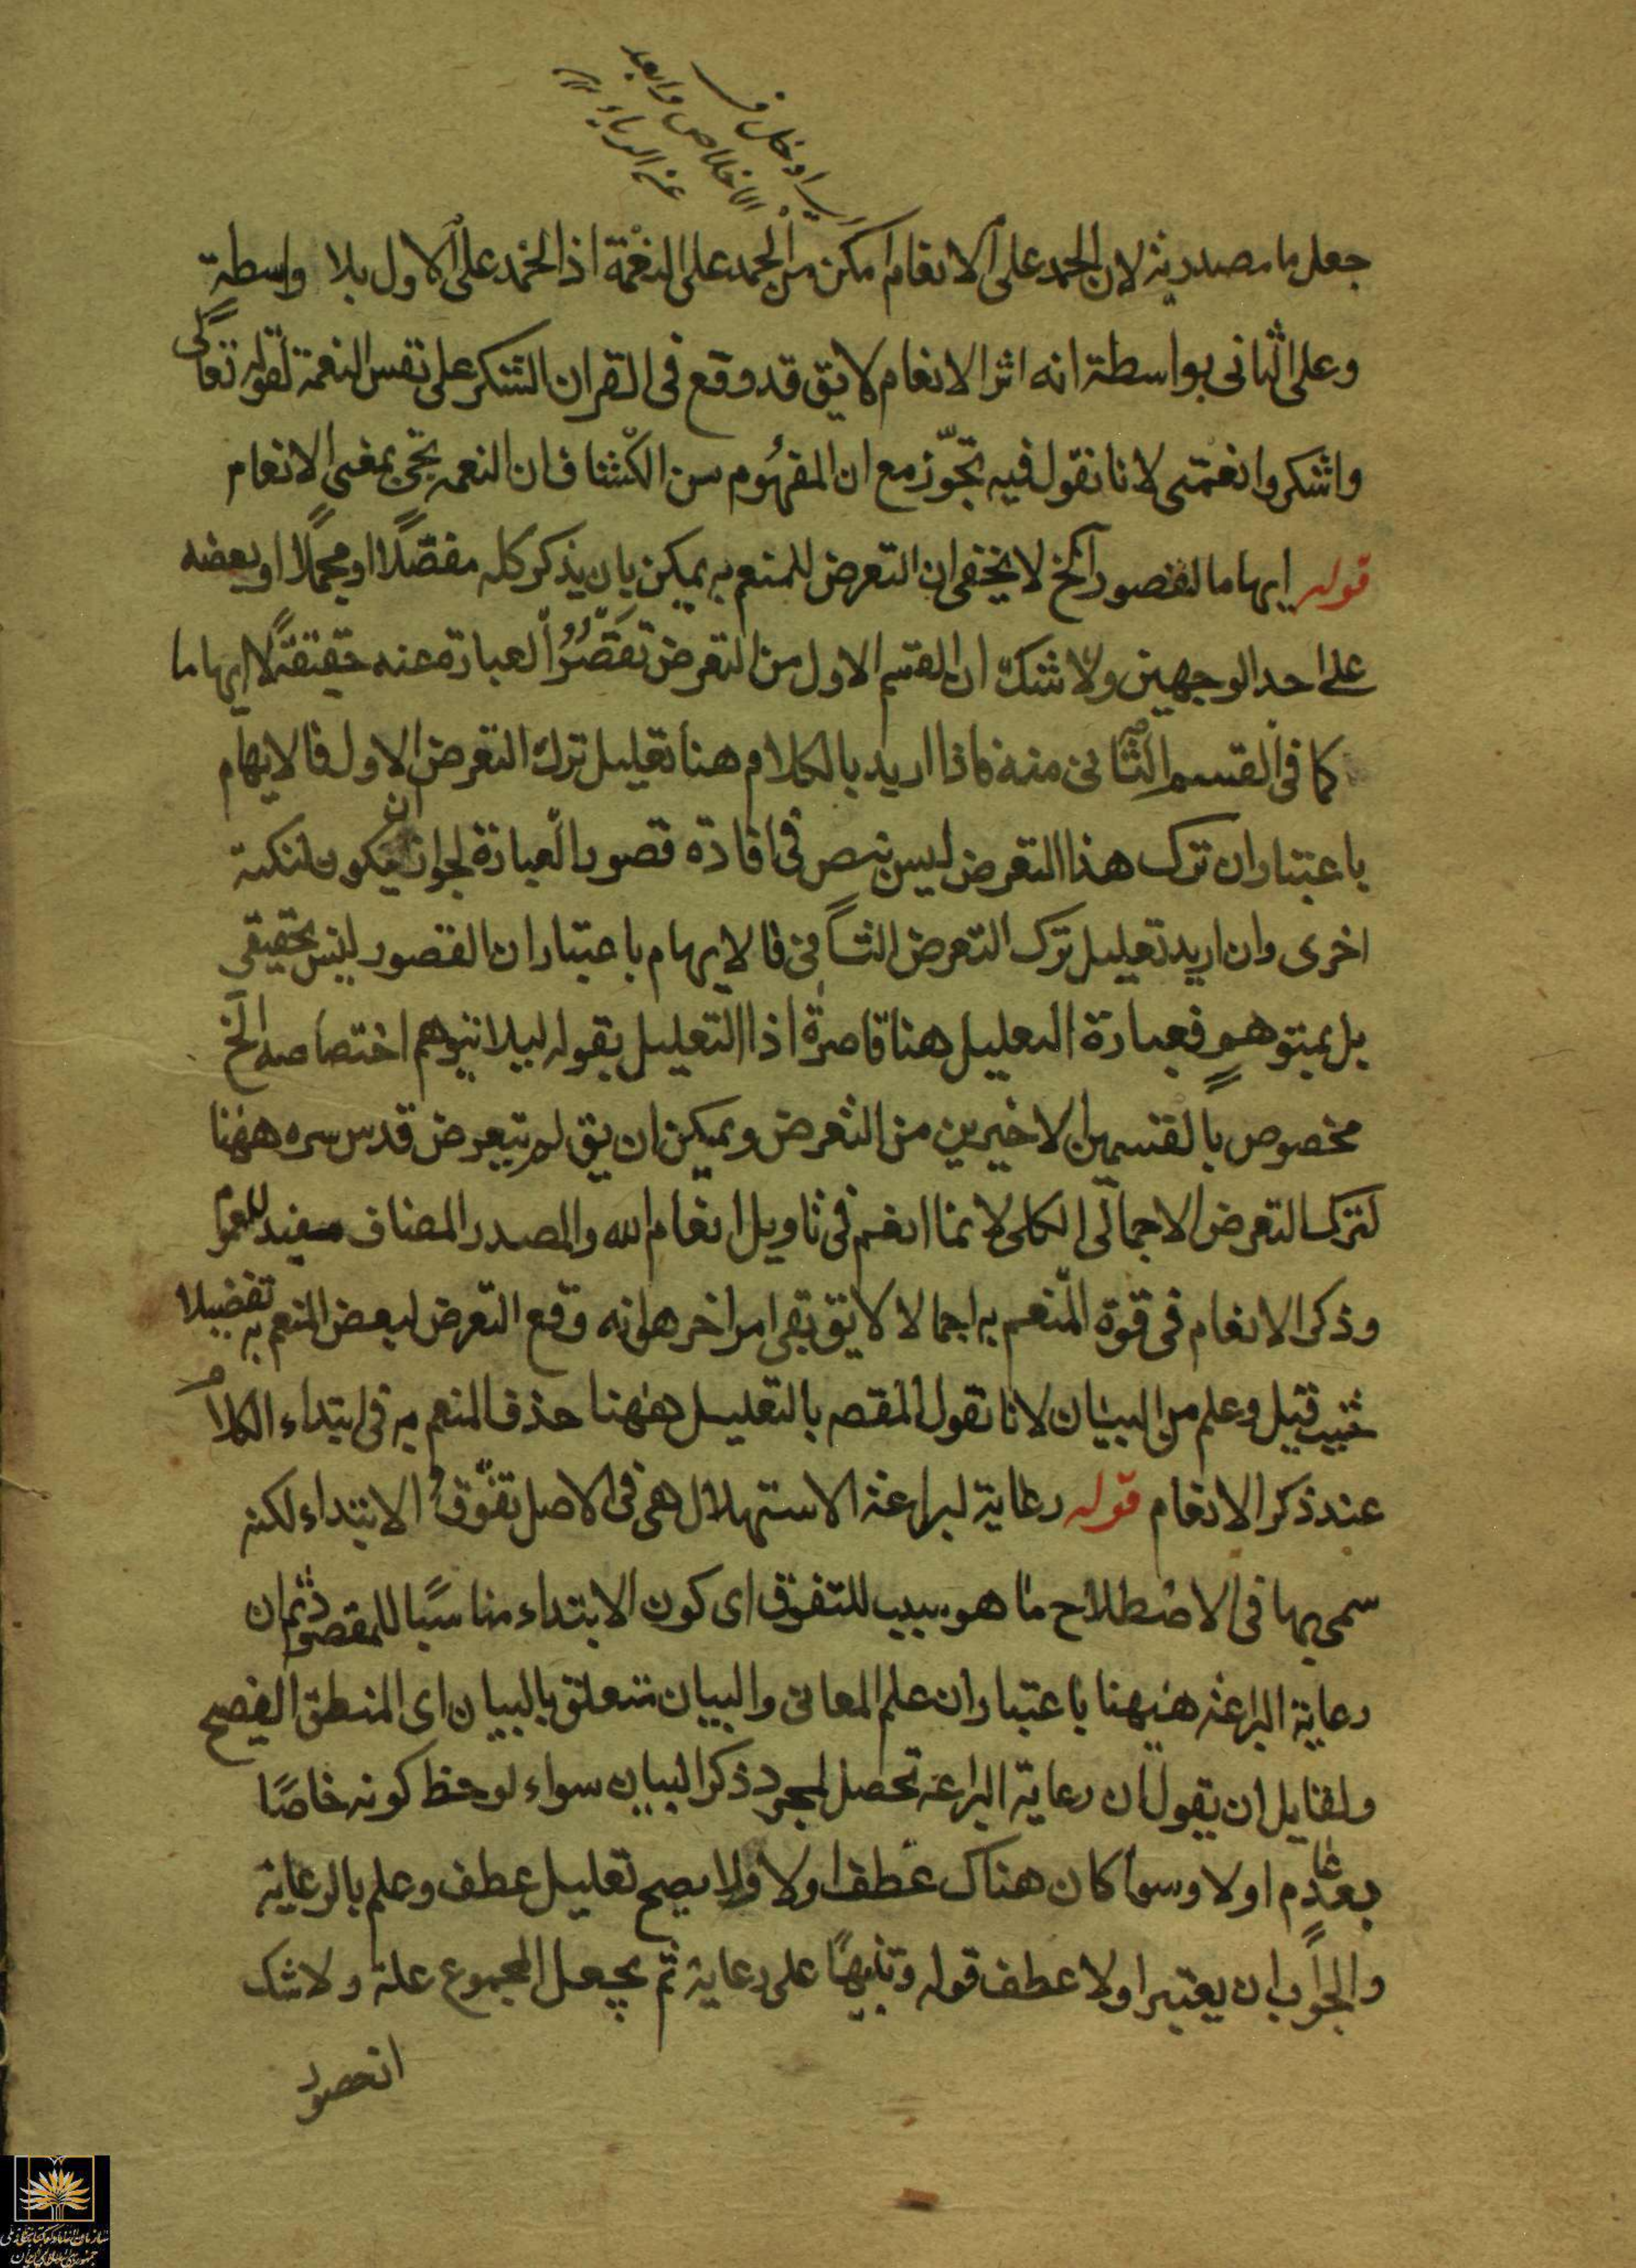 اى ادخل فى
الاخلاص وابعد
عن الرياء
جعل ما مصدرية لان الحمد على الانعام امكن من الحمد على النعمة اذ الحمد على الاول بلا واسطة
وعلى الثانى بواسطة انه اثر الانعام لا يق قد وقع فى القران الشكر على نفس النعمة لقوله تعالى
واشكروا نعمتى لانا نقول فيه تجوّز مع ان المفهوم من الكشاف ان النعمه تجئ بمعنى الانعام
قوله ايهاما لقصور آلخ لا يخفى ان التعرض للمنعم به يمكن بان يذكر كله مفصّلًا او مجملًا او بعضه
على احد الوجهين ولا شك ان القسم الاول من التعرض تقصر العبارة عنه حقيقةً لا ايهاما
كما فى القسم الثانى منه فاذا اريد بالكلام هنا تعليل ترك التعرض الاول فالايهام
باعتبار ان ترك هذا التعرض ليس بنص فى افادة قصور العبارة لجواز ان يكون لنكتة
اخرى وان اريد تعليل ترك التعرض الثانى فالايهام باعتبار ان القصور ليس بحقيقى
بل بمتوهم فعبارة التعليل هنا قاصرة اذا التعليل بقوله ليلا يتوهم اختصاصه الخ
مخصوص بالقسمين الاخيرين من التعرض ويمكن ان يق لم يتعرض قدس سره ههنا
لترك التعرض الاجمالى الكلى لانما انعم فى تاويل انعام الله والمصدر المضاف مفيد للعموم
وذكر الانعام فى قوة المنعم به اجمالا لا يق بقى امر اخر هو انه وقع التعرض لبعض المنعم به تفضيلا
حيث قيل وعلم من البيان لانا نقول المقصه بالتعليل ههنا حذف المنعم به فى ابتداء الكلام
عند ذكر الانعام قوله رعاية لبراعة الاستهلال هى فى الاصل تفوّق الابتداء لكنه
سمى بها فى الاصطلاح ما هو سبب للتفوق اى كون الابتداء مناسبًا للمقصود ثم ان
رعاية البراعة ههنا باعتبار ان علم المعانى والبيان متعلق بالبيان اى المنطق الفصيح
ولقايل ان يقول ان رعاية البراعة تحصل لمجرد ذكر البيان سواء لوحظ كونه خاصًا
بعد عام او لا وسوا كان هناك عطف او لا ولا يصح تعليل عطف وعلم بالرعاية
والجواب ان يعتبر اولا عطف قوله وتنبيهًا على رعاية ثم يجعل المجموع علة ولا شك